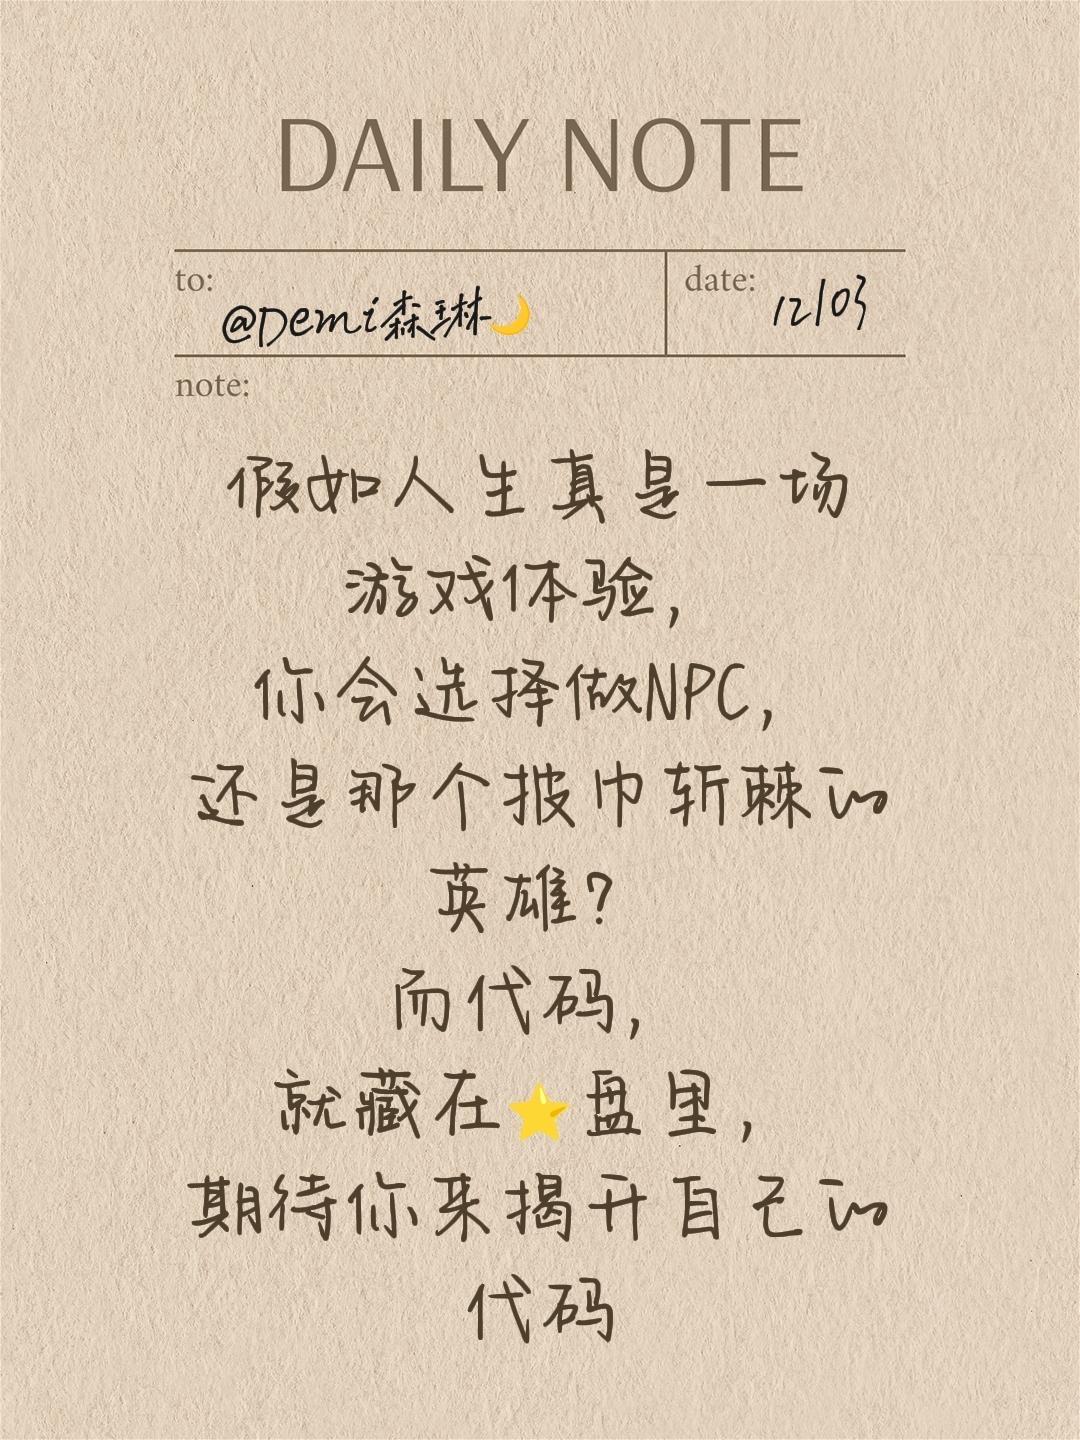 DAILY NOTE
to:
@Demi森琳🌙
date:
12/03
note:
假如人生真是一场
游戏体验，
你会选择做NPC，
还是那个披巾斩棘的
英雄？
而代码，
就藏在⭐盘里，
期待你来揭开自己的
代码